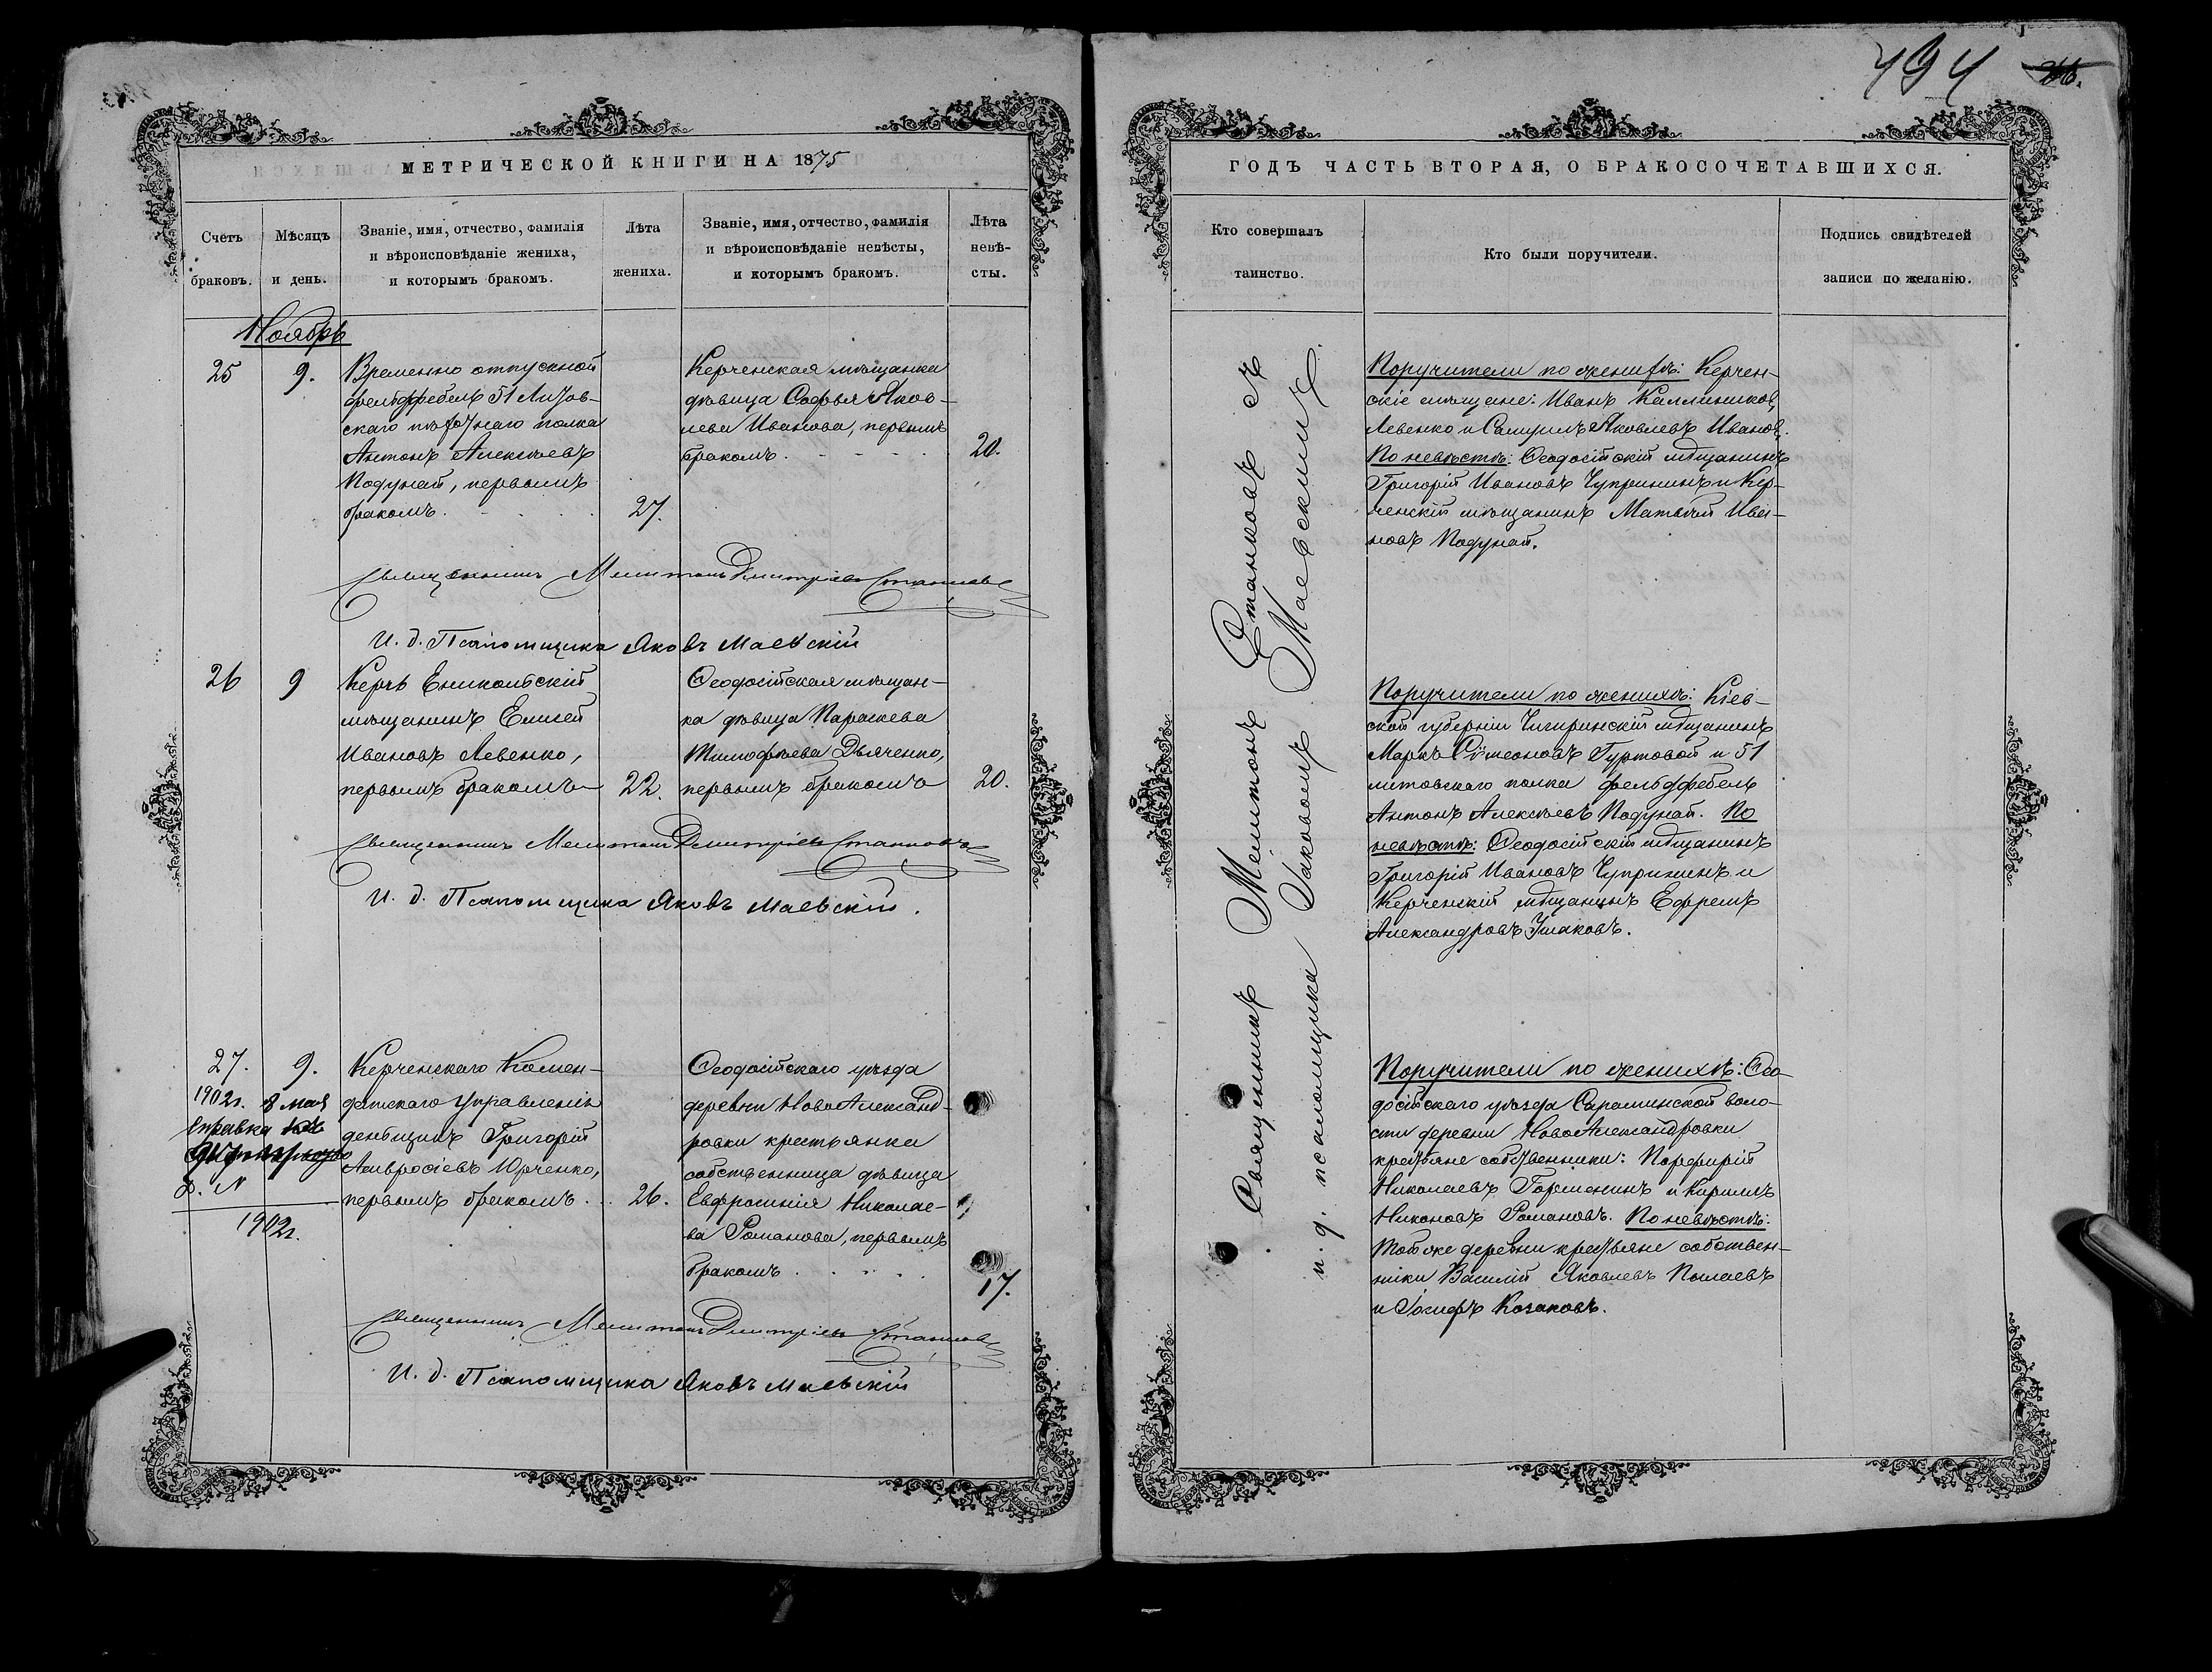 494 26.
МЕТРИЧЕСКОЙ КНИГИ НА 1875
Счетъ браковъ.
Мѣсяцъ и день.
Званіе, имя, отчество, фамилія
и вѣроисповѣданіе жениха,
и которымъ бракомъ.
Лѣта
жениха.
Званіе, имя, отчество, фамилія
и вѣроисповѣданіе невѣсты,
и которымъ бракомъ.
Лѣта
невѣ-
сты.
Ноябрь
25
9.
Временно отпускной
фельдфебель 51 Литов-
скаго пѣхотнаго полка
Антонъ Алексѣевъ
Подунай, первымъ
бракомъ.
27.
Керченская мѣщанка
дѣвица Софья Яков-
лева Иванова, первымъ
бракомъ.
20.
Священникъ Мелитонъ Димитріевъ Станковъ
И. д. Псаломщика Яковъ Маевскій
26
9
Керчь Еникольскій
мѣщанинъ Елисей
Ивановъ Левенко,
первымъ бракомъ
22.
Ѳеодосійская мѣщан-
ка дѣвица Параскева
Тимофѣева Дьяченко,
первымъ бракомъ
20.
Священникъ Мелитонъ Димитріевъ Станковъ
И. д. Псаломщика Яковъ Маевскій.
27.
9.
1902г. 8 мая
справка
1902г.
Керченскаго Комен-
дантскаго Управленія
деньщикъ Григорій
Амвросіевъ Юрченко,
первымъ бракомъ.
26.
Ѳеодосійскаго уѣзда
деревни НовоАлександ-
ровки крестьянка
собственница дѣвица
Евфросинія Николае-
ва Романова, первымъ
бракомъ
17.
Священникъ Мелитонъ Димитріевъ Станковъ
И. д. Псаломщика Яковъ Маевскій
ГОДЪ ЧАСТЬ ВТОРАЯ, О БРАКОСОЧЕТАВШИХСЯ.
Кто совершалъ
таинство.
Кто были поручители.
Подпись свидѣтелей
записи по желанію.
Священникъ Мелитонъ Станковъ съ
и. д. псаломщика Іаковомъ Маевскимъ.
Поручители по женихѣ: Керчен-
скіе мѣщане: Иванъ Каллиниковъ
Левенко и Самуилъ Яковлевъ Ивановъ.
По невѣстѣ: Ѳеодосійскій мѣщанинъ
Григорій Ивановъ Чупрининъ и Кер-
ченскій мѣщанинъ Матвѣй Ива-
новъ Подунай.
Поручители по женихѣ: Кіев-
ской губерніи Чигиринскій мѣщанинъ
Маркъ Сѵмеоновъ Гуртовой и 51
литовскаго полка фельдфебель
Антонъ Алексѣевъ Подунай. По
невѣстѣ: Ѳеодосійскій мѣщанинъ
Григорій Ивановъ Чупрининъ и
Керченскій мѣщанинъ Ефремъ
Александровъ Ушаковъ.
Поручители по женихѣ: Ѳео-
досійскаго уѣзда Сараминской воло-
сти деревни НовоАлександровки
крестьяне собственники: Порфирій
Николаевъ Горшенинъ и Кириллъ
Никоновъ Романовъ. По невѣстѣ:
той же деревни крестьяне собствен-
ники Василій Яковлевъ Полаевъ
и Іосифъ Козаковъ.